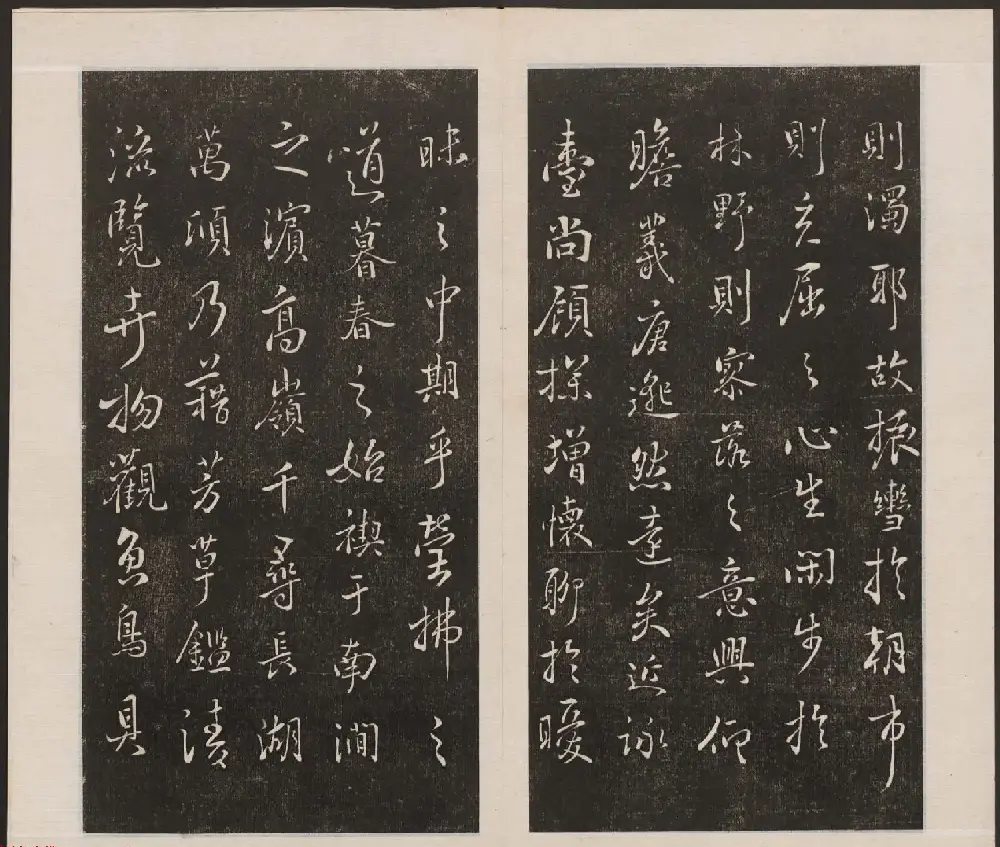 則濁耶故振轡於朝市
則充屈之心生閑步於
林野則寥落之意興仰
瞻羲唐邈然遠矣近詠
臺尚顧探增懷聊於曖
昧之中期乎瑩拂之
道暮春之始禊于南澗
之濱高嶺千尋長湖
萬頃乃藉芳草鑑清
流覽卉物觀魚鳥具